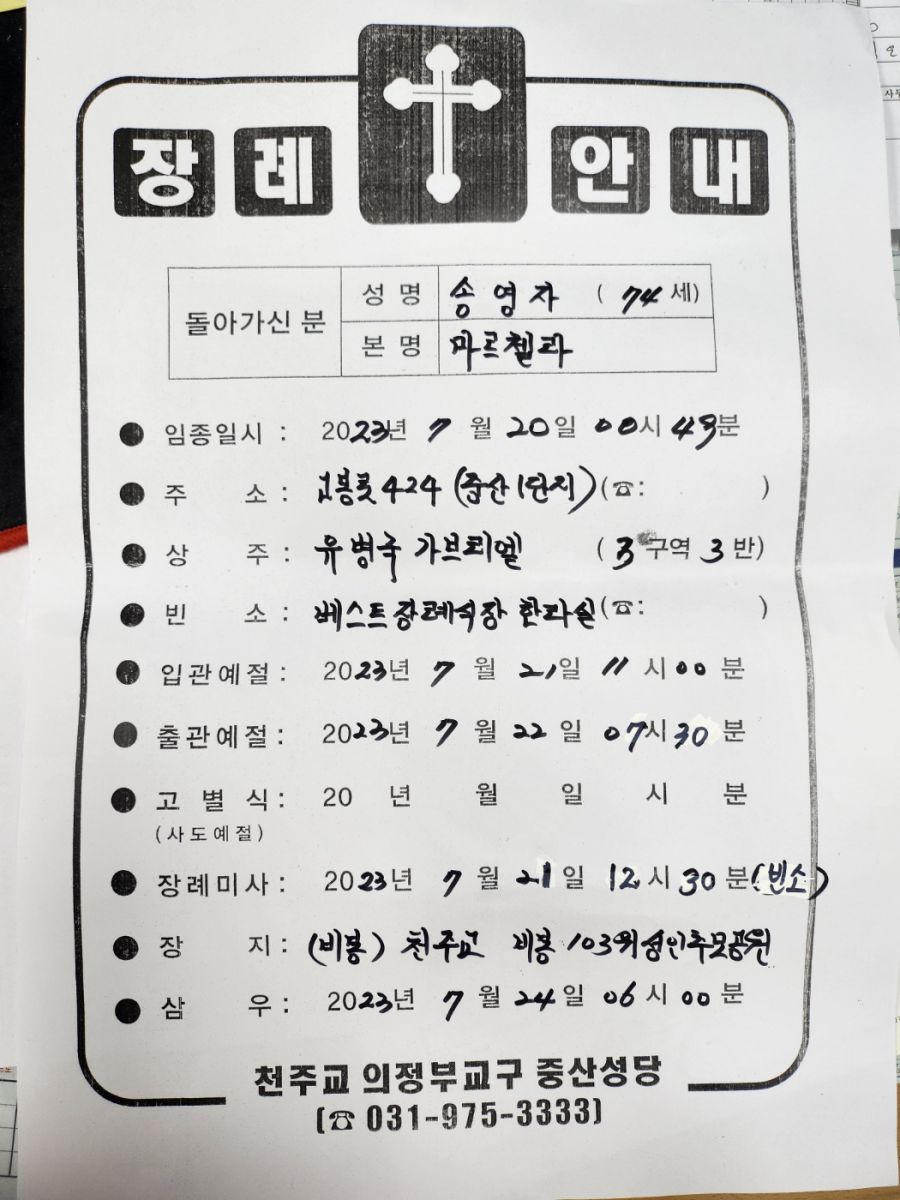 장례 안내
돌아가신 분
성 명 송영자 ( 74 세)
본 명 마르첼라
● 임종일시 : 2023년 7 월 20일 00시 49분
● 주 소 : 고봉로 424 (중산1단지) (☎: )
● 상 주 : 유병국 가브리엘 ( 3 구역 3 반)
● 빈 소 : 베스트장례식장 한라실 (☎: )
● 입관예절 : 2023년 7 월 21일 11 시 00 분
● 출관예절 : 2023년 7 월 22 일 07시 30 분
● 고 별 식 : 20 년 월 일 시 분
(사도예절)
● 장례미사 : 2023년 7 월 21 일 12 시 30 분(빈소)
● 장 지 : (비봉) 천주교 비봉 103위성인추모공원
● 삼 우 : 2023년 7 월 24 일 06 시 00 분
천주교 의정부교구 중산성당
(☎ 031-975-3333)